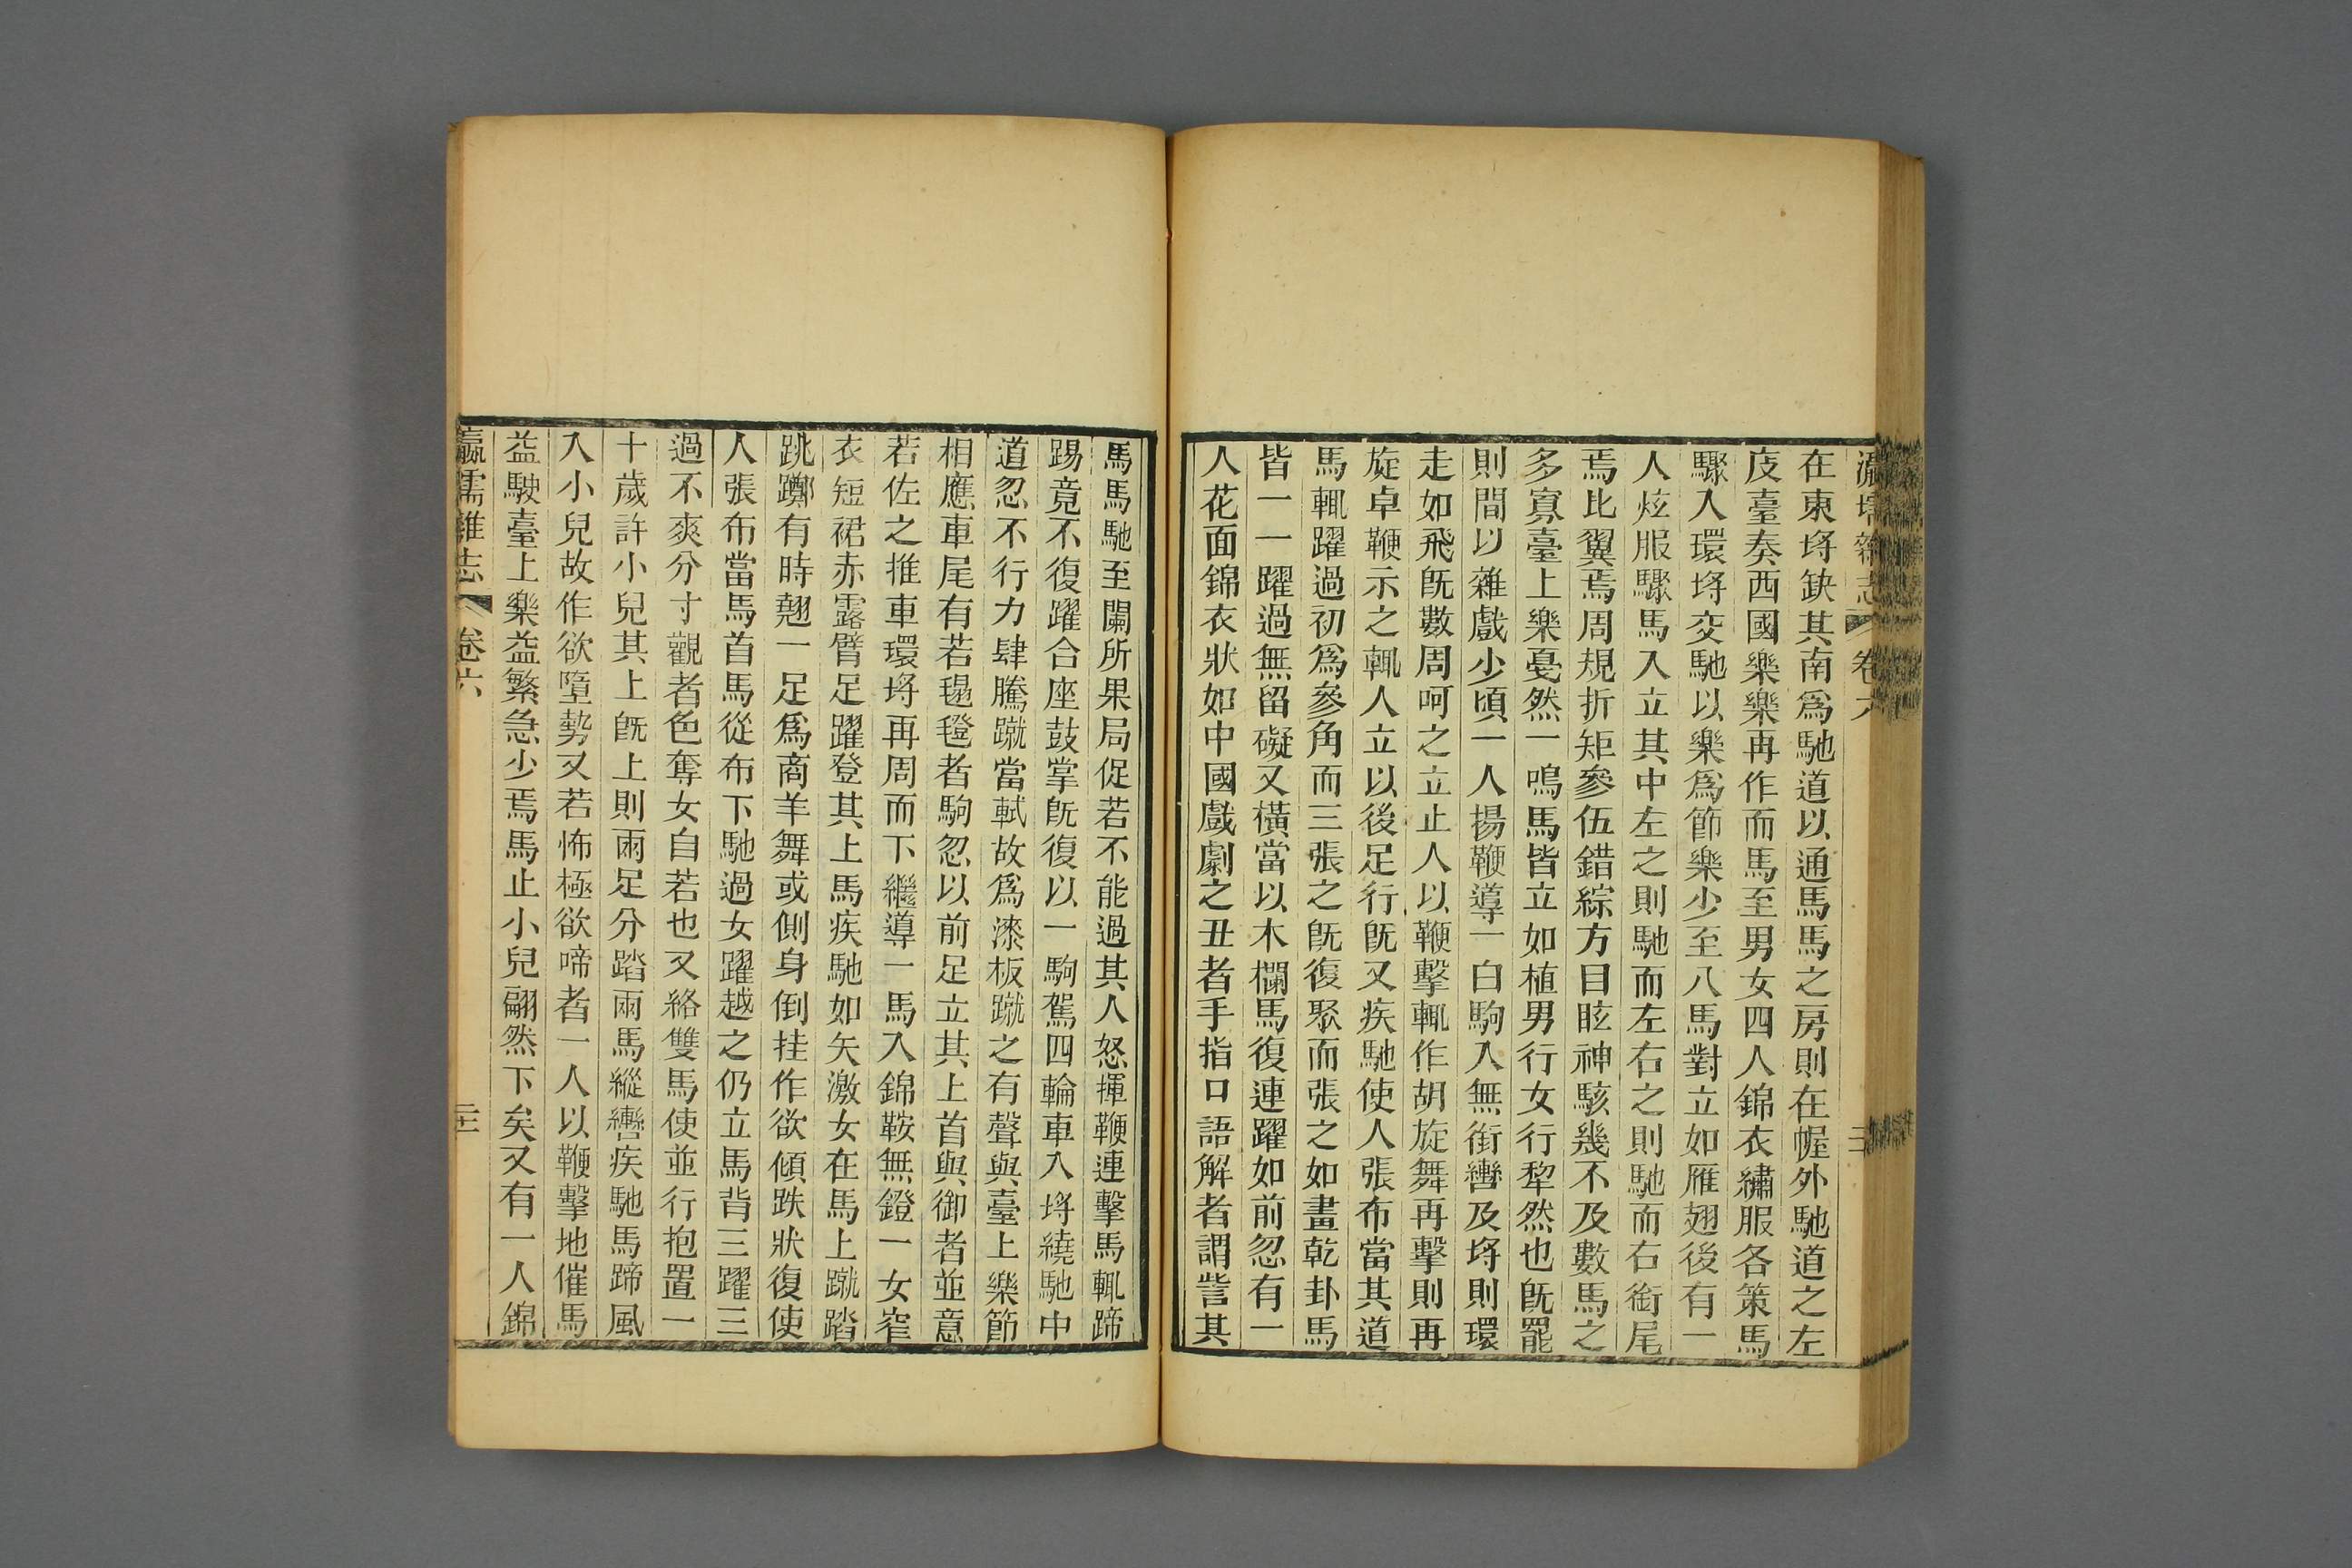 瀛壖雜志 卷六
在東埓缺其南爲馳道以通馬馬之房則在幄外馳道之左
庋臺奏西國樂樂再作而馬至男女四人錦衣繡服各策馬
驟入環埓交馳以樂爲節樂少至八馬對立如雁翅後有一
人炫服驟馬入立其中左之則馳而左右之則馳而右銜尾
焉比翼焉周規折矩參伍錯綜方目眩神駭幾不及數馬之
多寡臺上樂戞然一鳴馬皆立如植男行女行犂然也旣罷
則間以雜戲少頃一人揚鞭導一白駒入無銜轡及埓則環
走如飛旣數周呵之立止人以鞭擊輒作胡旋舞再擊則再
旋卓鞭示之輒人立以後足行旣又疾馳使人張布當其道
馬輒躍過初爲參角而三張之旣復聚而張之如畫乾卦馬
皆一一躍過無留礙又橫當以木欄馬復連躍如前忽有一
人花面錦衣狀如中國戲劇之丑者手指口語解者謂訾其
馬馬馳至闌所果局促若不能過其人怒揮鞭連擊馬輒蹄
踢竟不復躍合座鼓掌旣復以一駒駕四輪車入埓繞馳中
道忽不行力肆騰蹴當軾故爲漆板蹴之有聲與臺上樂節
相應車尾有若毾㲪者駒忽以前足立其上首與御者並意
若佐之推車環埓再周而下繼導一馬入錦鞍無鐙一女窄
衣短裙赤露臂足躍登其上馬疾馳如矢激女在馬上蹴踏
跳躑有時翹一足爲商羊舞或側身倒挂作欲傾跌狀復使
人張布當馬首馬從布下馳過女躍越之仍立馬背三躍三
過不爽分寸觀者色奪女自若也又絡雙馬使並行抱置一
十歲許小兒其上旣上則兩足分踏兩馬縱轡疾馳馬蹄風
入小兒故作欲墮勢又若怖極欲啼者一人以鞭擊地催馬
益駛臺上樂益繁急少焉馬止小兒翩然下矣又有一人錦
瀛壖雜志 卷六